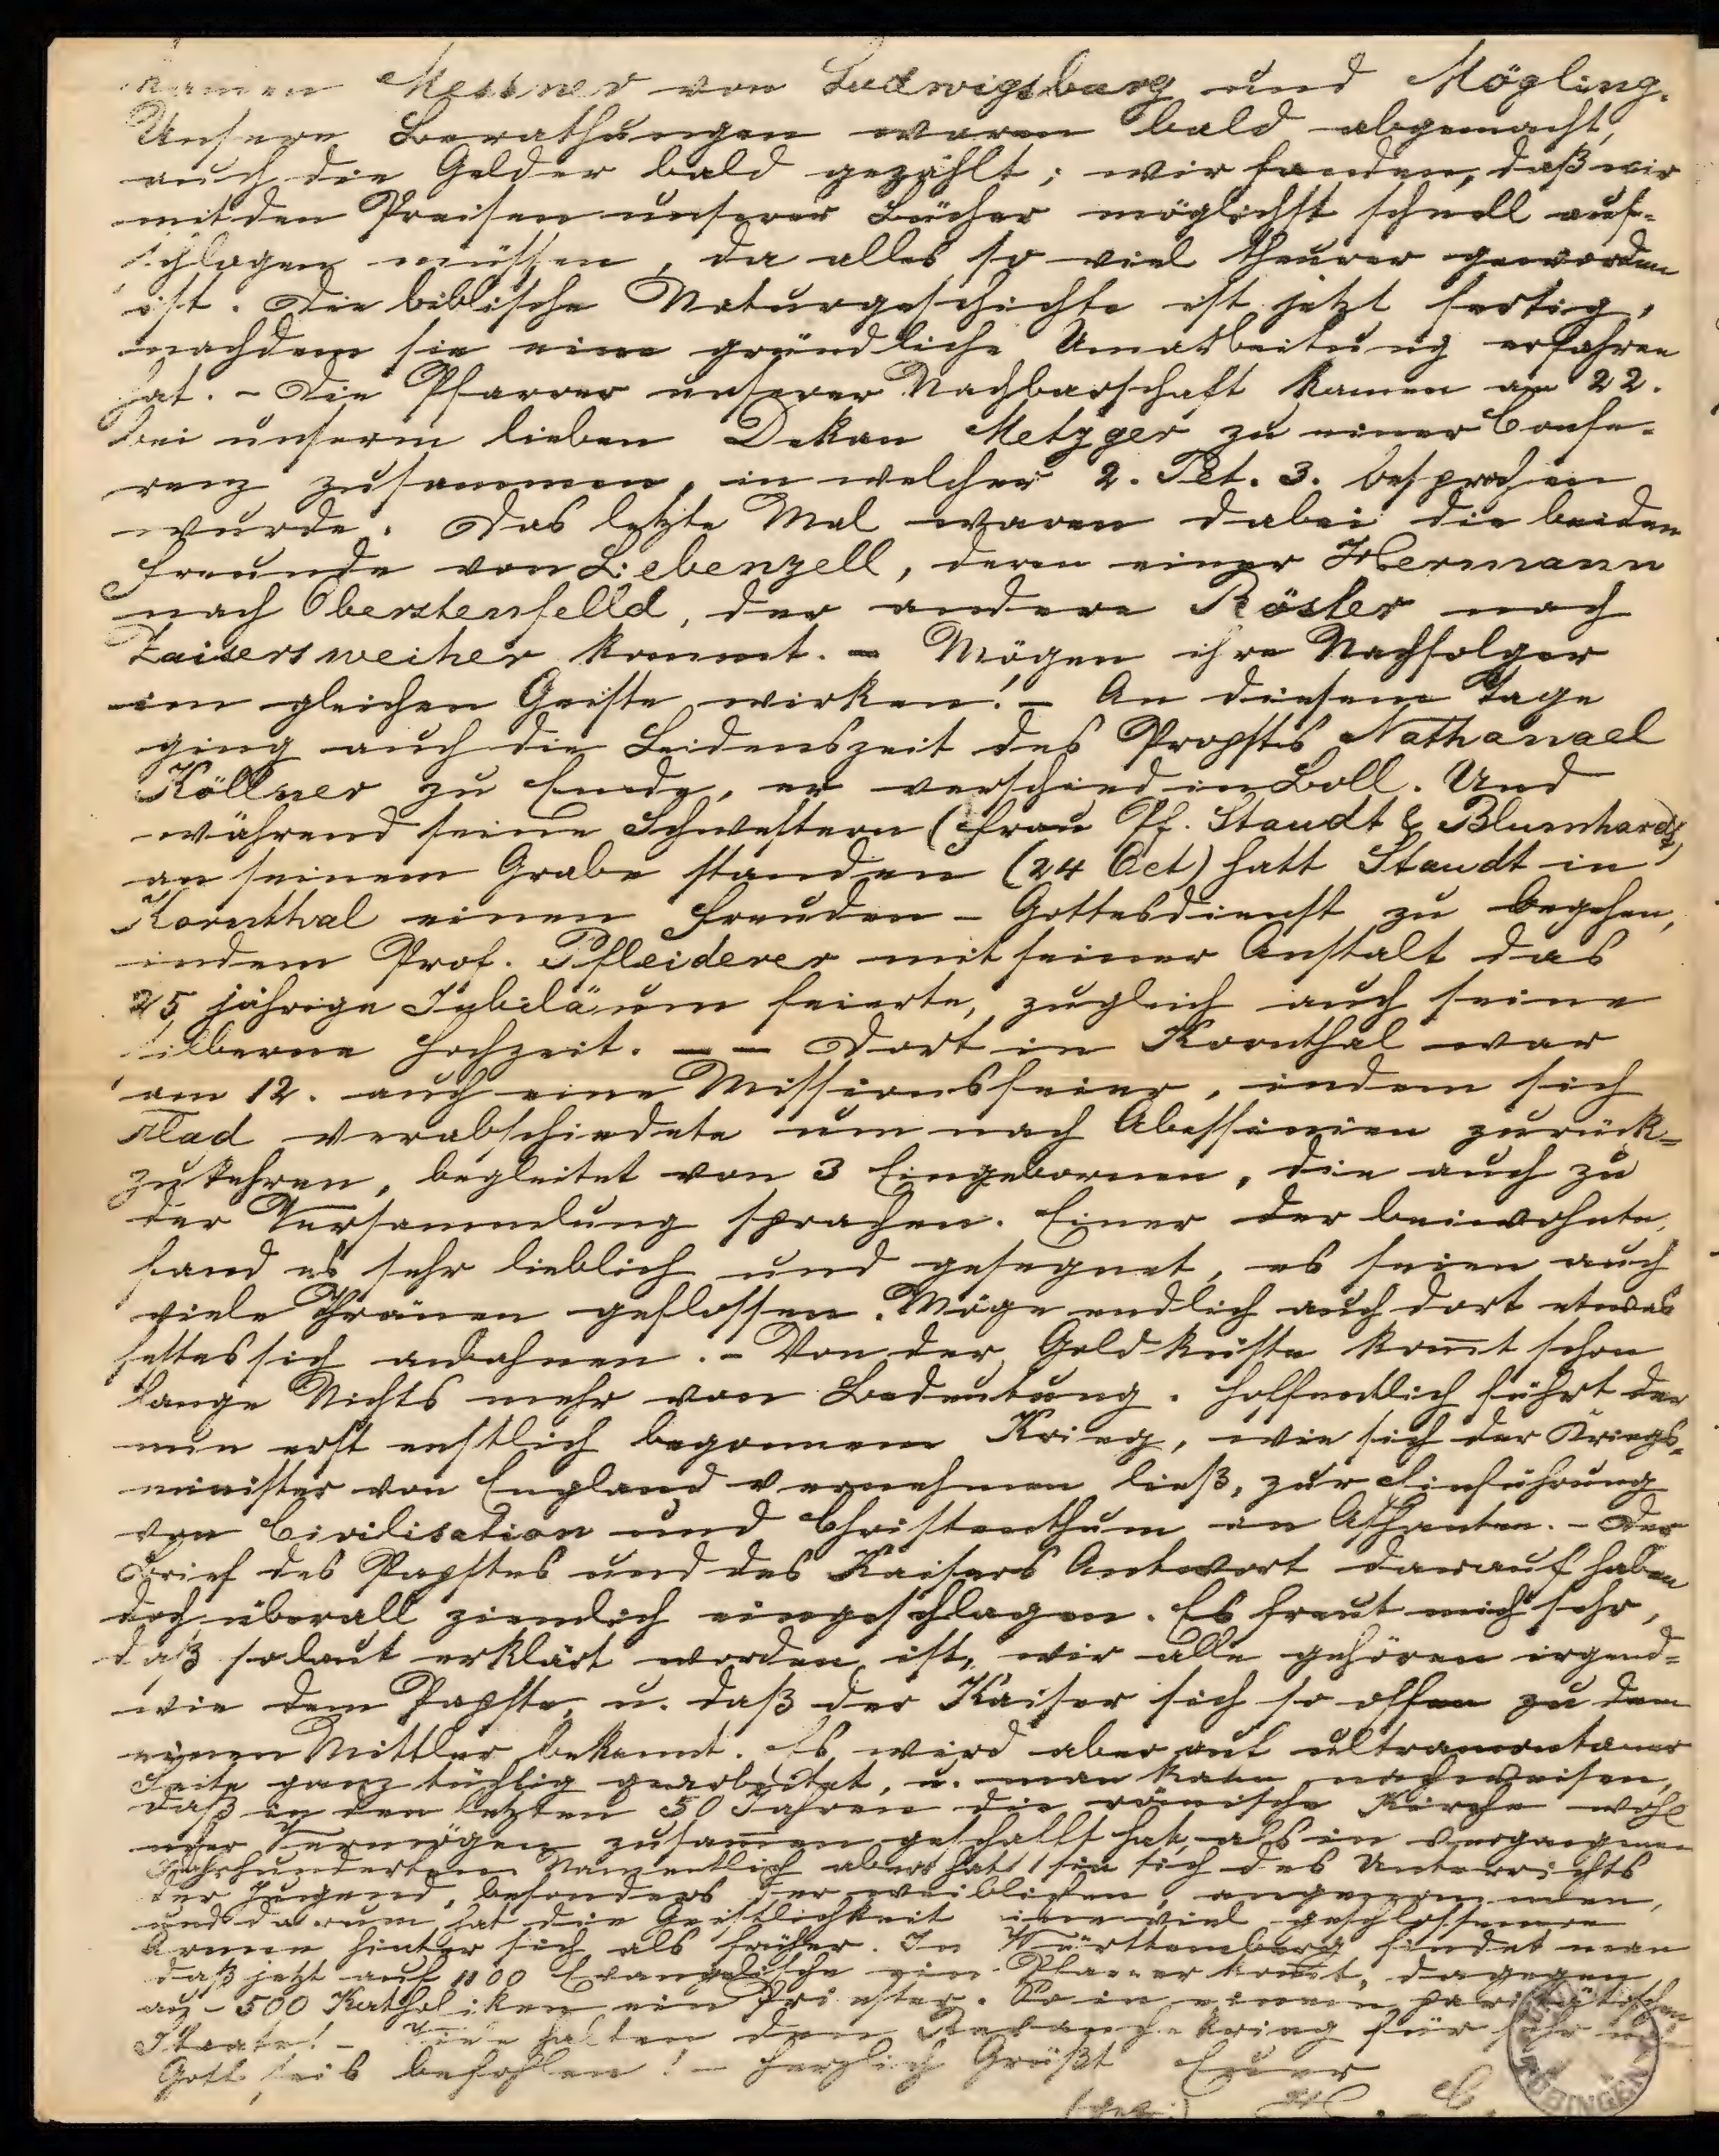 kamen Messner von Ludwigsburg und Mögling.
Unsere Berathungen waren bald abgemacht,
auch die Gelder bald gezählt; wir fanden, daß wir
mit den Preisen unserer Bücher möglichst schnell auf-
schlagen müssen, da alles so viel theurer geworden
ist. Die biblische Naturgeschichte ist jetzt fertig,
nachdem sie eine gründliche Umarbeitung erfahren
hat. - Die Pfarrer unserer Nachbarschaft kamen am 22.
bei unserm lieben Dekan Metzger zu einer Confe-
renz zusammen, in welcher 2. Pet. 3. besprochen
wurde. Das letzte Mal waren dabei die beiden
Freunde von Liebenzell, deren einer Hermann
nach Oberstenfelld, der andere Rösler nach
Zaisersweiher kommt. - Mögen ihre Nachfolger
im gleichen Geiste wirken! - An diesem Tage
ging auch die Leidenszeit des Propsts Nathanael
Köllner zu Ende, er verschied in Boll. Und
während seine Schwestern (Frau Pf. Staudt & Blumhardt)
an seinem Grabe standen (24 Oct) hatt Staudt in
Kornthal einen Freuden-Gottesdienst zu begehen,
indem Prof. Pfleiderer mit seiner Anstalt das
25 jährige Jubiläum feierte, zugleich auch seine
silberne Hochzeit. - - Dort in Kornthal war
am 12. auch eine Missionsfeier, indem sich
Flad verabschiedete um nach Abessinien zurück-
zukehren, begleitet von 3 Eingebornen, die auch zu
der Versammlung sprachen. Einer der beiwohnte,
fand es sehr lieblich und gesegnet, es seien auch
viele Thränen geflossen. Möge endlich auch dort etwas
sich anbahnen. - Von der Goldküste kom̅t schon
lange Nichts mehr von Bedeutung. Hoffentlich führt der
nun erst enstlich begonnene Krieg, wie sich der Kriegs-
minister von England vernehmen ließ, zur Einführung
von Civilisation und Christenthum in Ashanten. - Der
Brief des Papstes und des Kaisers Antwort darauf haben
doch überall ziemlich eingeschlagen. Es freut mich sehr,
daß so laut erklärt worden ist, wir alle gehören irgend-
wie dem Papste u. daß der Kaiser sich so offen zu dem
einen Mittler bekennt. Es wird aber auf ultramontaner
Seite ganz tüchtig gearbeitet, u. man kann nachweisen,
daß in den letzten 50 Jahren die römische Kirche wohl
mehr Vermögen zusam̅engeschafft hat, als in vergangenen
Jahrhunderten. Namentlich aber hat sie sich des Unterrichts
der Jugend, besonders der weiblichen, angenommen,
und darum hat die Geistlichkeit eine viel geschlossenere
Armee hinter sich als früher. In Württemberg findet man
daß jetzt auf 1100 Evangelische ein Pfarrer kom̅t, dagegen
auf 500 Katholiken ein Priester. So in einem paritätischen
Staate! - Viele halten den Revanchekrieg für
Gott seis befohlen! - Herzlich Grüßt Euer
(gez:) H. G.